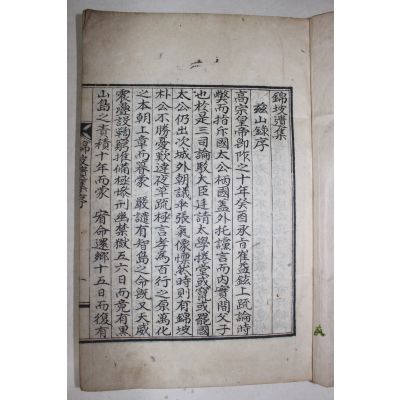 錦坡遺集
玆山錄序
高宗皇帝御阼之十年癸酉承旨崔益鉉上疏論時
弊而指斥國太公柄國蓋外托讜言而內實間父子
也於是三司論駁大臣廷請太學捲堂或竄或罷國
太公仍出次城外朝議乖張氣像慄然時則有錦坡
朴公不勝憂歎達夜草疏極言孝爲百行之原萬化
之本朝上章而暮蒙 嚴譴有智島之命旣又天威
震疊設鞫窮推備極慘刑幽禁獄五六日而竟有黑
山島之責積十年而蒙 宥命還鄉十五日而復有
錦坡遺集序